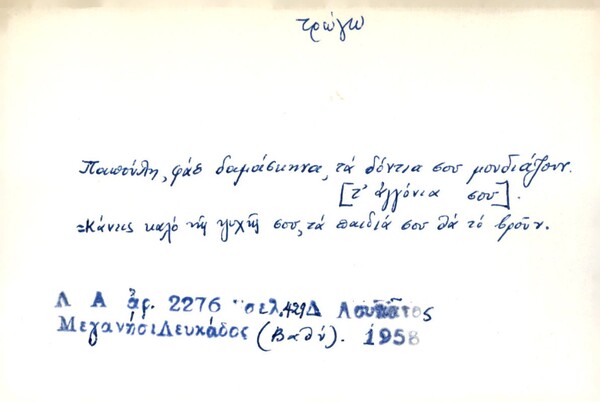 τρώγω
Παππούλη, φάε δαμάσκηνα, τά δόντια σου μουδιάζουν.
[τ' ἀγγόνια σου].
=Κάνεις καλό τῆς ψυχῆς σου, τά παιδιά σου θά τό βροῦν.
Λ Α ἀρ. 2276 σελ. 429 Δ Λουκᾶτος
Μεγανήσι Λευκάδος (Βαθύ). 1958